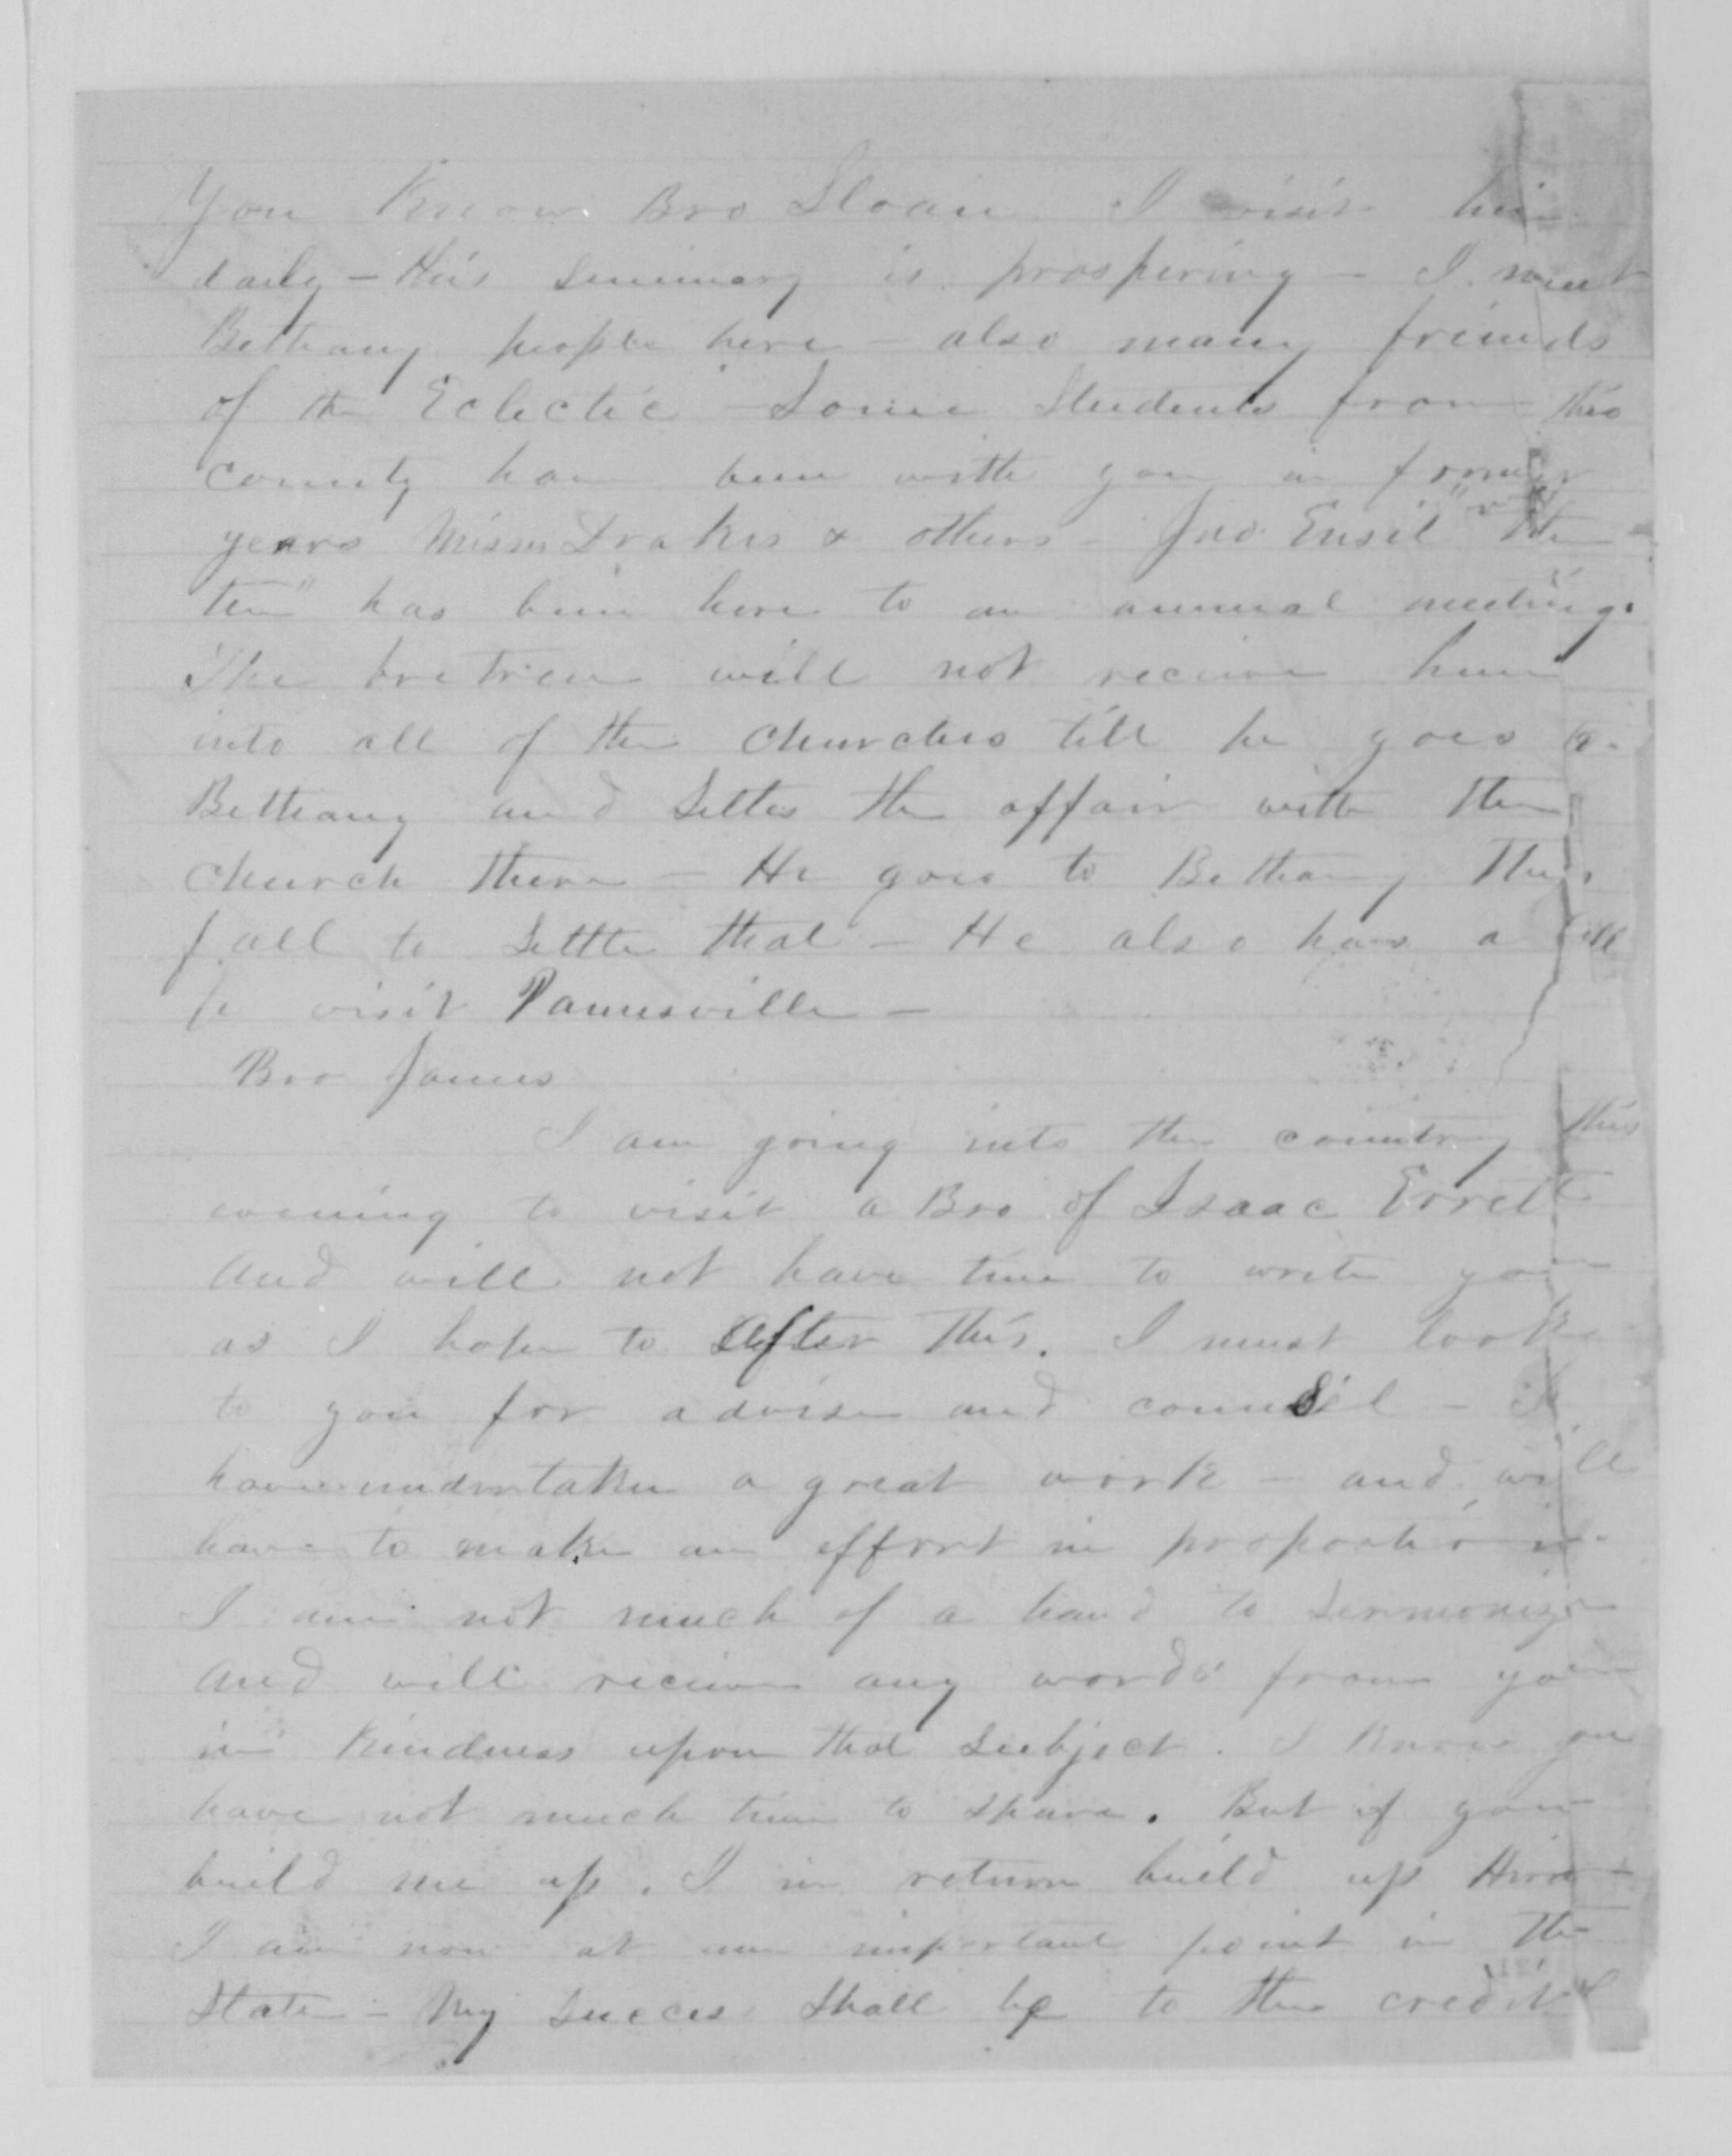 You Know Bro Sloan I visit him
daily – His Seminary is prospering – I meet
Bethany people here – also many friends
of the Eclectic – Some Students from this
county have been with you in former
years Misses Drakes & others – Jno Ensil "the
ten" has been here to an annual meeting.
The bretren will not receive him
into all of the Churches till he goes to
Bethany and Settles the affair with the
Church there – He goes to Bethany This
fall to Settle that – He also has a call
to visit Painesville –
Bro James
I am going into the country this
evening to visit a Bro of Isaac Errett
and will not have time to write you
as I hope to after this. I must look
to you for advise and counsil – I
have undertaken a great work – and will
have to make an effort in proportion –
I am not much of a hand to Sermonize
and will receive any words from you
in Kindness upon that Subject. I Know you
have not much time to Spare. But if you
build me up. I in return build up Hiram
I am now at an important point in the
State – My Success Shall be to the credit of